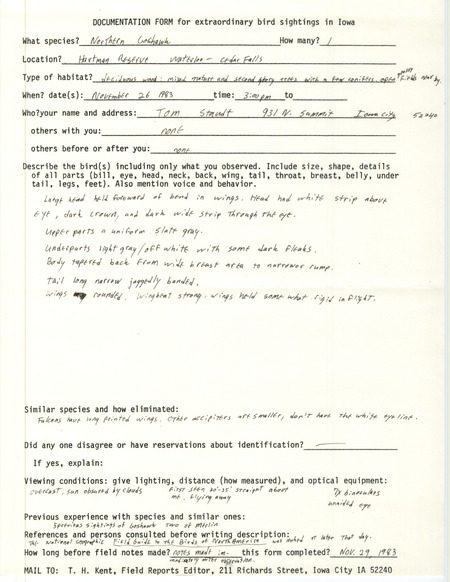 DOCUMENTATION FORM for extraordinary bird sightings in Iowa
What species? Northern Goshawk How many? 1
Location? Hartman Reserve Waterloo - Cedar Falls
Type of habitat? deciduous wood: mixed mature and second growth trees with a few conifers. open fields near by.
When? date(s): November 26 1983 time: 3:00pm to
Who?your name and address: Tom Staudt 931 N. Summit Iowa City 52240
others with you: none
others before or after you: none
Describe the bird(s) including only what you observed. Include size, shape, details
of all parts (bill, eye, head, neck, back, wing, tail, throat, breast, belly, under
tail, legs, feet). Also mention voice and behavior.
Large head held foreward of bend in wings. Head had white strip above
eye, dark crown, and dark wide strip through the eye.
Upper parts a uniform slate gray.
Underparts light gray/off white with some dark fleaks.
Body tapered back from wide breast area to narrower rump.
Tail long narrow jaggedly banded.
Wings rounded. Wingbeat strong. Wings held some what rigid in flight.
Similar species and how eliminated:
Falcons have long pointed wings. Other accipiters are smaller, don't have the white eye line.
Did any one disagree or have reservations about identification?
If yes, explain:
Viewing conditions: give lighting, distance (how measured), and optical equipment:
overcast, sun obsured by clouds first seen 30'-35' straight above 7x binoculars
me. flying away unaided eye
Previous experience with species and similar ones:
Previous sightings of Goshawk two of Merlin
References and persons consulted before writing description:
The National Geographic Field Guide to the Birds of North America was noted later that day.
How long before field notes made? notes made im- this form completed? Nov. 29, 1983
mediately after observation.
MAIL TO: T. H. Kent, Field Reports Editor, 211 Richards Street, Iowa City IA 52240